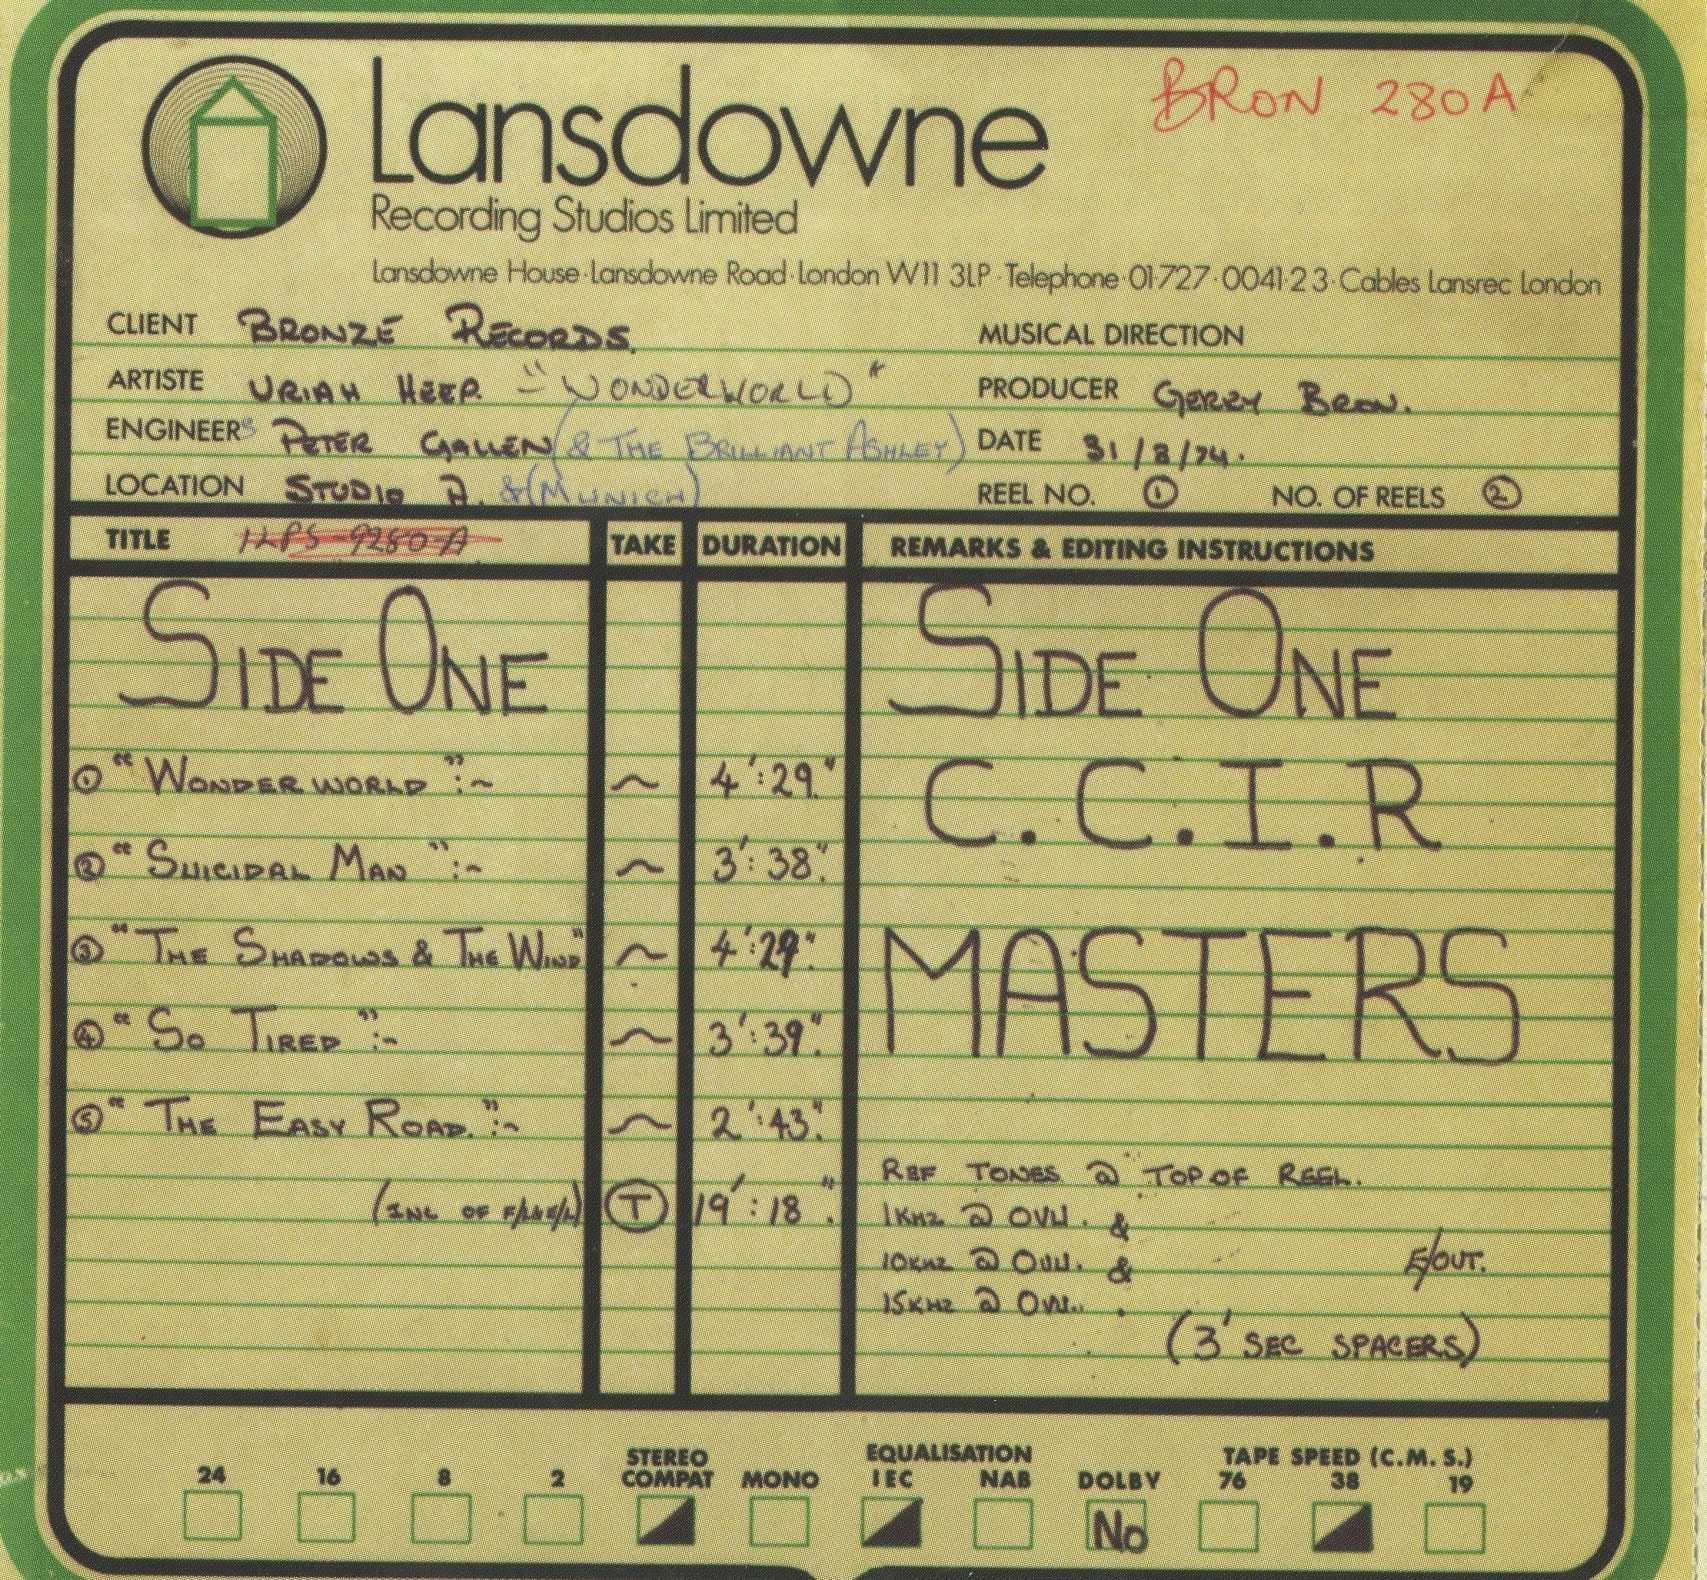 BRON 280A
Lansdowne
Recording Studios Limited
Lansdowne House·Lansdowne Road·London W11 3LP·Telephone·01·727·0041·2 3·Cables Lansrec London
CLIENT BRONZE RECORDS. MUSICAL DIRECTION
ARTISTE URIAH HEEP. "WONDERWORLD" PRODUCER GERRY BRON.
ENGINEERS PETER GALLEN (& THE BRILLIANT ASHLEY) DATE 31/3/74.
LOCATION STUDIO A. & (MUNICH) REEL NO. 1 NO. OF REELS 2
TITLE ILPS-9280-A TAKE DURATION REMARKS & EDITING INSTRUCTIONS
SIDE ONE SIDE ONE
① "WONDERWORLD":~ ~ 4':29." C.C.I.R
② "SUICIDAL MAN":~ ~ 3':38."
③ "THE SHADOWS & THE WIND" ~ 4':29." MASTERS
④ "SO TIRED":~ ~ 3':39."
⑤ "THE EASY ROAD.":~ ~ 2':43."
REF TONES @ TOP OF REEL.
(INC OF F/L&E/L) T 19':18". 1KHZ @ OVU. &
10KHZ @ OVU. & E/OUT.
15KHZ @ OVU.
(3' SEC SPACERS)
STEREO EQUALISATION TAPE SPEED (C.M.S.)
24 16 8 2 COMPAT MONO IEC NAB DOLBY 76 38 19
No